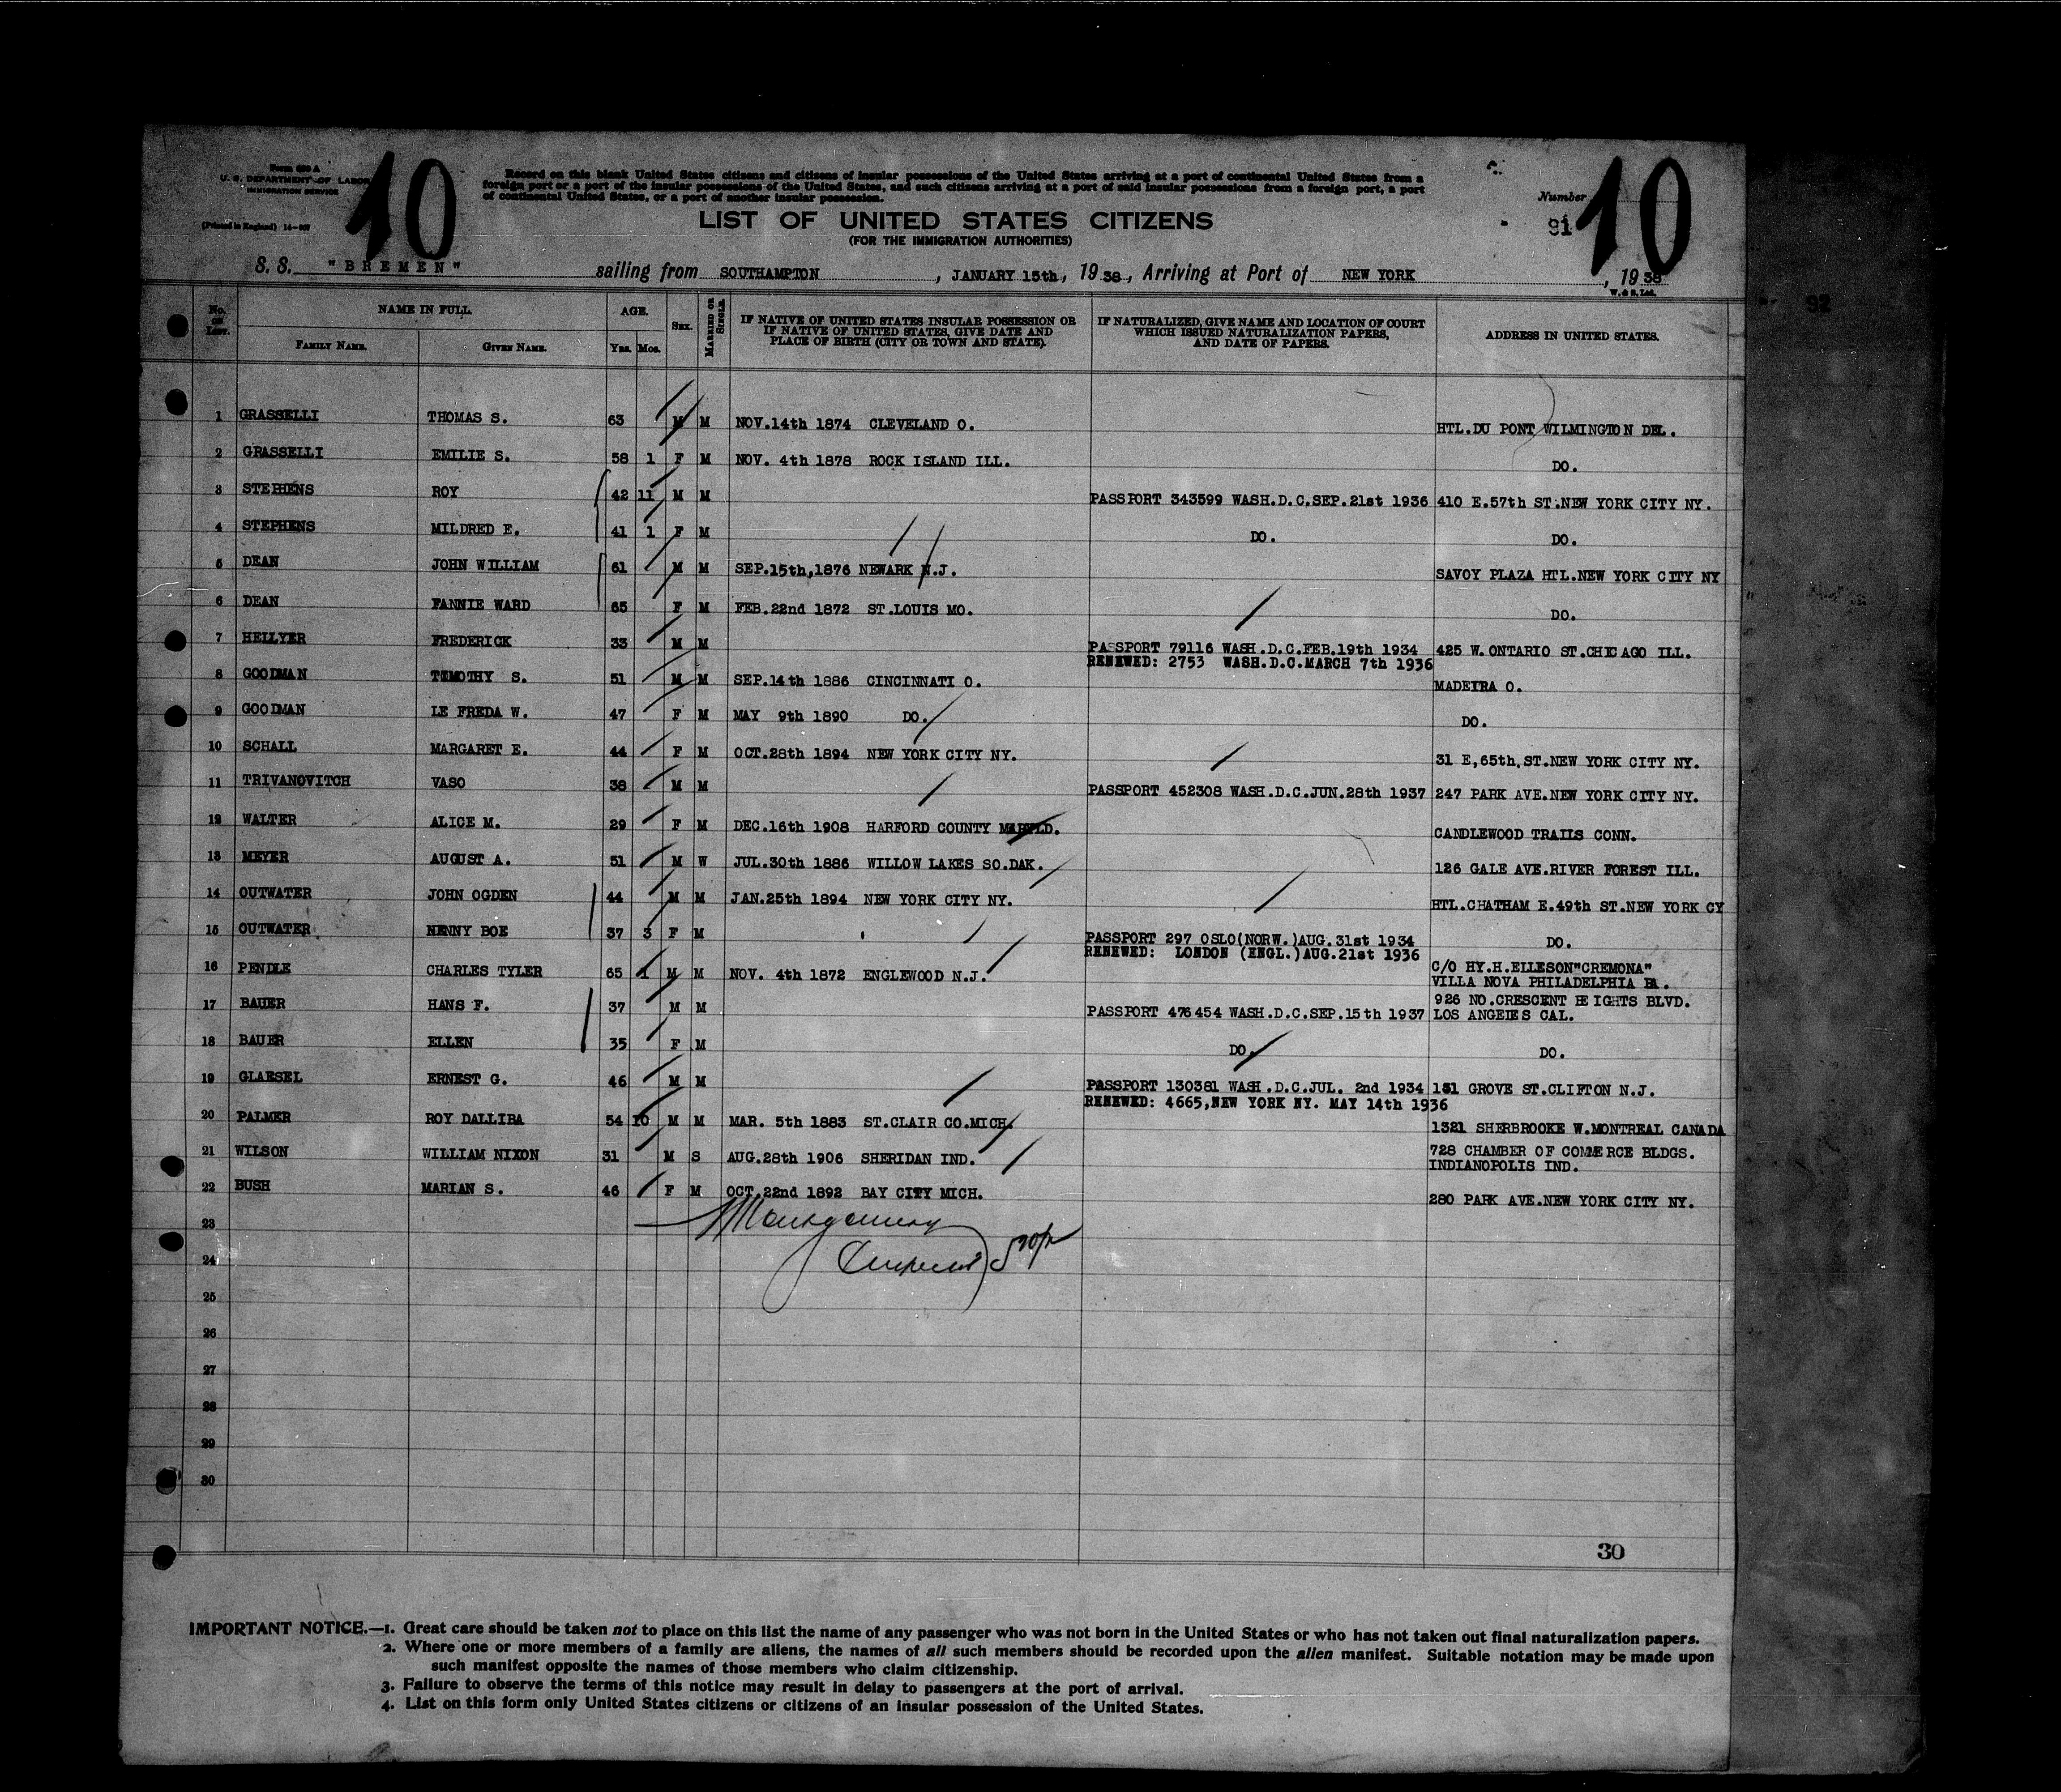 Form 630 A
U. S. DEPARTMENT OF LABOR
IMMIGRATION SERVICE
(Printed in England)
10
Record on this blank United States citizens and citizens of insular possessions of the United States arriving at a port of continental United States from a
foreign port or a port of the insular possessions of the United States, and such citizens arriving at a port of said insular possessions from a foreign port, a port
of continental United States, or a port of another insular possession.
LIST OF UNITED STATES CITIZENS
(FOR THE IMMIGRATION AUTHORITIES)
Number
91
10
S. S. "BREMEN" sailing from SOUTHAMPTON, JANUARY 15th, 1938, Arriving at Port of NEW YORK, 1938
W. & S. Ltd.
92
No. ON LIST. NAME IN FULL. AGE. SEX. MARRIED OR SINGLE. IF NATIVE OF UNITED STATES INSULAR POSSESSION OR IF NATIVE OF UNITED STATES, GIVE DATE AND PLACE OF BIRTH (CITY OR TOWN AND STATE). IF NATURALIZED, GIVE NAME AND LOCATION OF COURT WHICH ISSUED NATURALIZATION PAPERS, AND DATE OF PAPERS. ADDRESS IN UNITED STATES.
FAMILY NAME. GIVEN NAME. Yrs. Mos.
1 GRASSELLI THOMAS S. 63 M M NOV.14th 1874 CLEVELAND O. HTL.DU PONT WILMINGTON DEL.
2 GRASSELLI EMILIE S. 58 1 F M NOV. 4th 1878 ROCK ISLAND ILL. DO.
3 STEPHENS ROY 42 11 M M PASSPORT 343599 WASH.D.C.SEP.21st 1936 410 E.57th ST.NEW YORK CITY NY.
4 STEPHENS MILDRED E. 41 1 F M DO. DO.
5 DEAN JOHN WILLIAM 61 M M SEP.15th,1876 NEWARK N.J. SAVOY PLAZA HTL.NEW YORK CITY NY
6 DEAN FANNIE WARD 65 F M FEB.22nd 1872 ST.LOUIS MO. DO.
7 HELLYER FREDERICK 33 M M PASSPORT 79116 WASH.D.C.FEB.19th 1934 425 W.ONTARIO ST.CHICAGO ILL.
RENEWED: 2753 WASH.D.C.MARCH 7th 1936
8 GOODMAN TIMOTHY S. 51 M M SEP.14th 1886 CINCINNATI O. MADEIRA O.
9 GOODMAN LE FREDA W. 47 F M MAY 9th 1890 DO. DO.
10 SCHALL MARGARET E. 44 F M OCT.28th 1894 NEW YORK CITY NY. 31 E,65th,ST.NEW YORK CITY NY.
11 TRIVANOVITCH VASO 38 M M PASSPORT 452308 WASH.D.C.JUN.28th 1937 247 PARK AVE.NEW YORK CITY NY.
12 WALTER ALICE M. 29 F M DEC.16th 1908 HARFORD COUNTY MARYLD. CANDLEWOOD TRAILS CONN.
13 MEYER AUGUST A. 51 M W JUL.30th 1886 WILLOW LAKES SO.DAK. 126 GALE AVE.RIVER FOREST ILL.
14 OUTWATER JOHN OGDEN 44 M M JAN.25th 1894 NEW YORK CITY NY. HTL.CHATHAM E.49th ST.NEW YORK CY
15 OUTWATER NENNY BOE 37 3 F M PASSPORT 297 OSLO(NORW.)AUG.31st 1934 DO.
RENEWED: LONDON (ENGL.)AUG.21st 1936
16 PENDLE CHARLES TYLER 65 1 M M NOV. 4th 1872 ENGLEWOOD N.J. C/O HY.H.ELLESON"CREMONA"
VILLA NOVA PHILADELPHIA PA.
17 BAUER HANS F. 37 M M PASSPORT 476454 WASH.D.C.SEP.15th 1937 926 NO.CRESCENT HEIGHTS BLVD.
LOS ANGELES CAL.
18 BAUER ELLEN 35 F M DO. DO.
19 GLAESEL ERNEST G. 46 M M PASSPORT 130381 WASH.D.C.JUL. 2nd 1934 131 GROVE ST.CLIFTON N.J.
RENEWED: 4665,NEW YORK NY. MAY 14th 1936
20 PALMER ROY DALLIBA 54 10 M M MAR. 5th 1883 ST.CLAIR CO.MICH. 1321 SHERBROOKE W.MONTREAL CANADA
21 WILSON WILLIAM NIXON 31 M S AUG.28th 1906 SHERIDAN IND. 728 CHAMBER OF COMMERCE BLDGS.
INDIANOPOLIS IND.
22 BUSH MARIAN S. 46 F M OCT.22nd 1892 BAY CITY MICH. 280 PARK AVE.NEW YORK CITY NY.
23 Montgomery
24
25
26
27
28
29
30
30
IMPORTANT NOTICE.—1. Great care should be taken not to place on this list the name of any passenger who was not born in the United States or who has not taken out final naturalization papers.
2. Where one or more members of a family are aliens, the names of all such members should be recorded upon the alien manifest. Suitable notation may be made upon
such manifest opposite the names of those members who claim citizenship.
3. Failure to observe the terms of this notice may result in delay to passengers at the port of arrival.
4. List on this form only United States citizens or citizens of an insular possession of the United States.